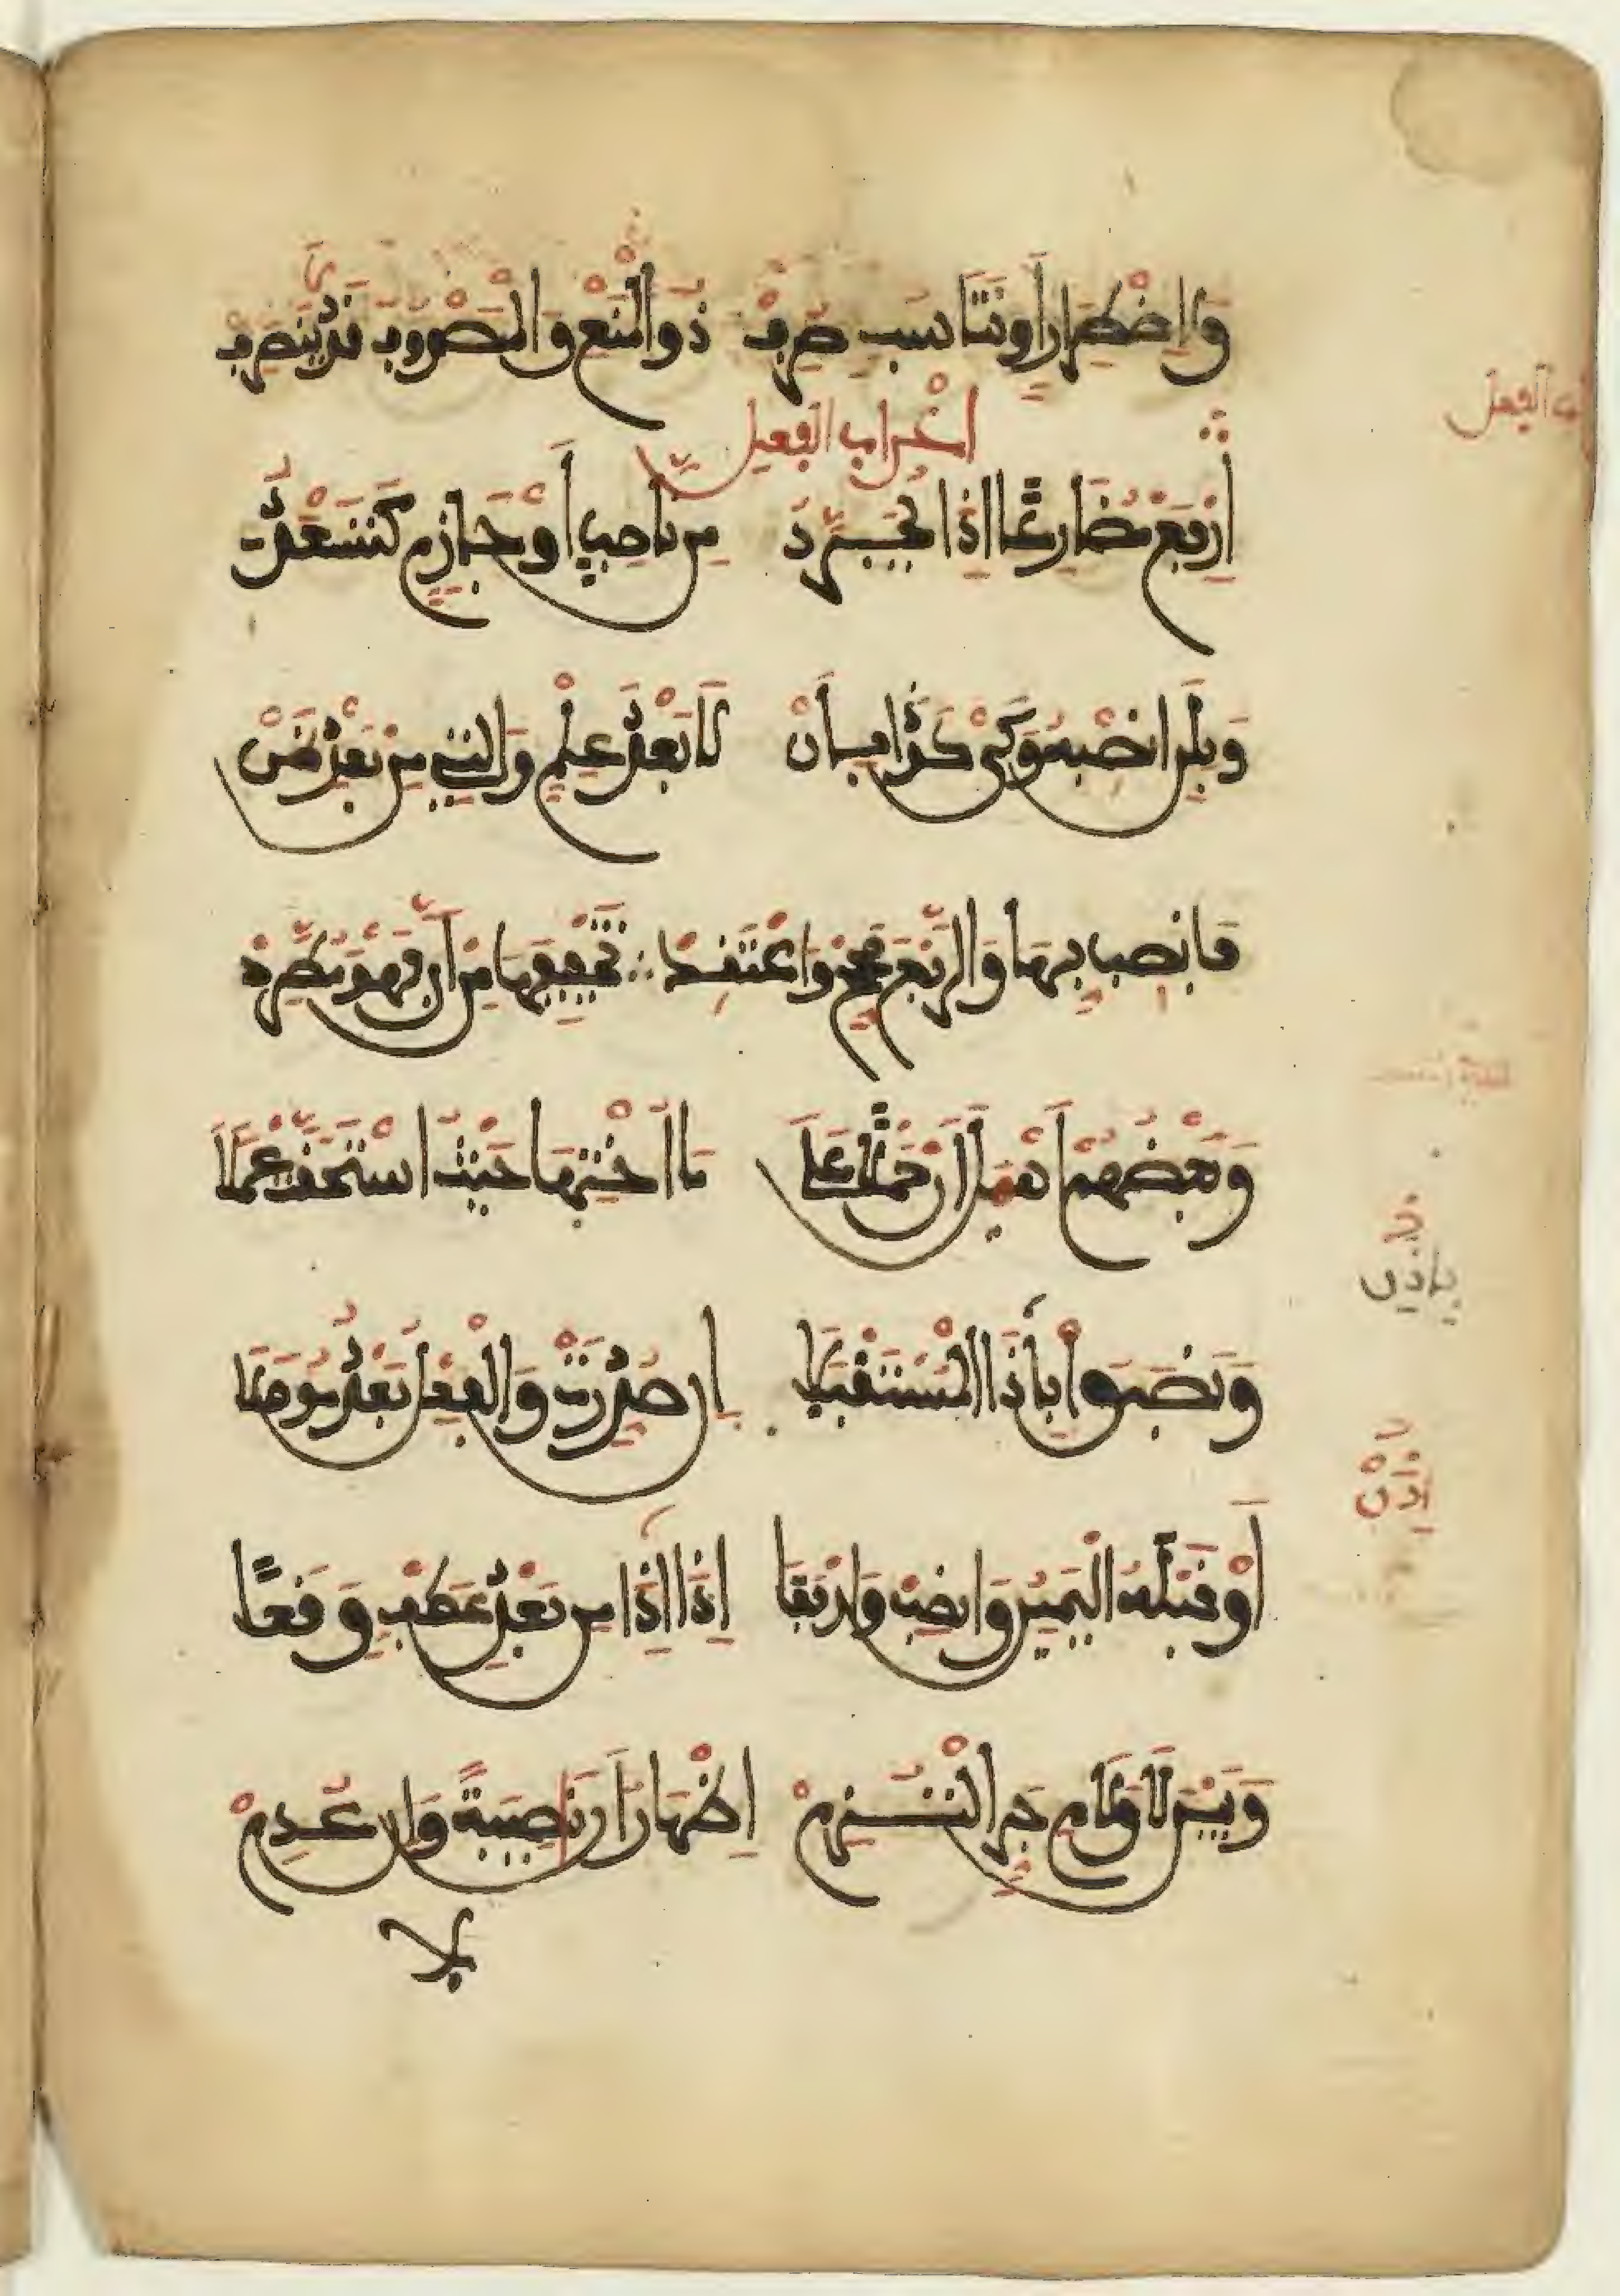 وَلِاضْطِرَارٍ أَوْ تَنَاسُبٍ صُرِفْ ذُو الْمَنْعِ وَالْمَصْرُوفُ قَدْ لَا يَنْصَرِفْ
اعْرَابُ الْفِعْلِ
إِرْفَعْ مُضَارِعًا إِذَا يُجَرَّدُ مِن نَاصِبٍ أَوْ جَازِمٍ كَتَسْعَدُ
وَبِلَنِ انْصِبْهُ وَكَيْ كَذَا بِأَنْ لَا بَعْدَ عِلْمٍ وَالَّتِي مِنْ بَعْدِ ظَنْ
فَانْصِبْ بِهَا وَالرَّفْعَ صَحِّحْ وَاعْتَقِدْ تَخْفِيفَهَا مِنْ أَنَّ فَهْوَ مُطَّرِدْ
وَبَعْضُهُمْ أَهْمَلَ أَنْ حَمْلًا عَلَى مَا أُخْتِهَا حَيْثُ اسْتَحَقَّتْ عَمَلَا
وَنَصَبُوا بِإِذًا الْمُسْتَقْبَلَا إِن صُدِّرَتْ وَالْفِعْلُ بَعْدُ مُوصَلَا
أَوْ قَبْلَهُ الْيَمِينُ وَانْصِبْ وَارْفَعَا إِذَا إِذًا مِن بَعْدِ عَطْفٍ وَقَعَا
وَبَيْنَ لَا وَلَامِ جَرٍّ الْتُزِمْ إِظْهَارُ أَن نَاصِبَةً وَإِن عُدِمْ
لا
الفعل
بإذن
إِذَنْ